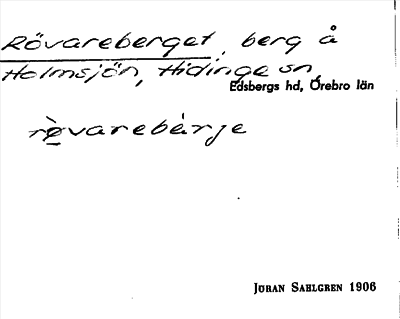 Rövareberget, berg å
Holmsjön, Hidinge sn,
Edsbergs hd, Örebro län
rø̀varebàrje
JÖRAN SAHLGREN 1906